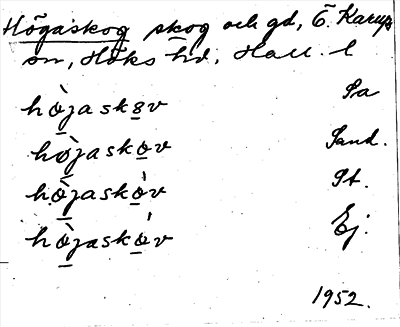 Högaskog skog och gd, Ö. Karups
sn, Höks hd, Hall. l
hò̱jasks̱v Sa
hø̱̀jasko̱v Sand.
hò̱jasko̱̍v St.
hò̱jasko̱̍v Ej.
1952.